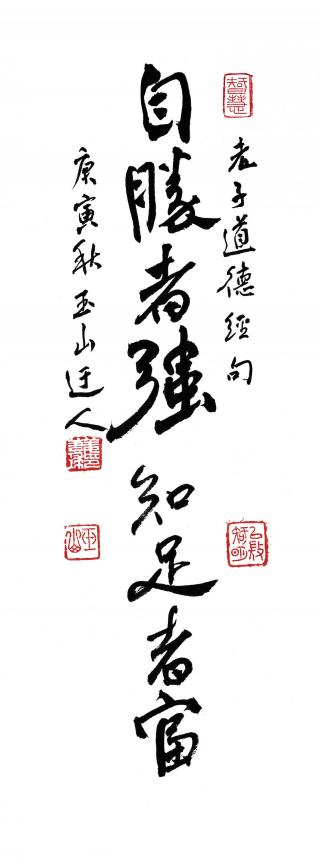 智慧
老子道德經句
自勝者強 知足者富
庚寅秋玉山迂人
玉山